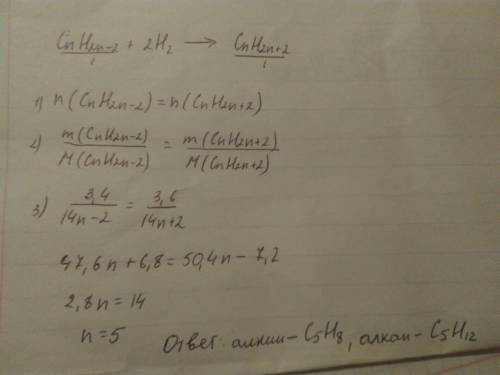 CnH2n-2 + 2H2 → CnH2n+2
1 1
1) n(CnH2n-2) = n(CnH2n+2)
2) m(CnH2n-2)/M(CnH2n-2) = m(CnH2n+2)/M(CnH2n+2)
3) 3,4/14n-2 = 3,6/14n+2
47,6n + 6,8 = 50,4n - 7,2
2,8n = 14
n = 5
Ответ: алкин - C5H8, алкан - C5H12